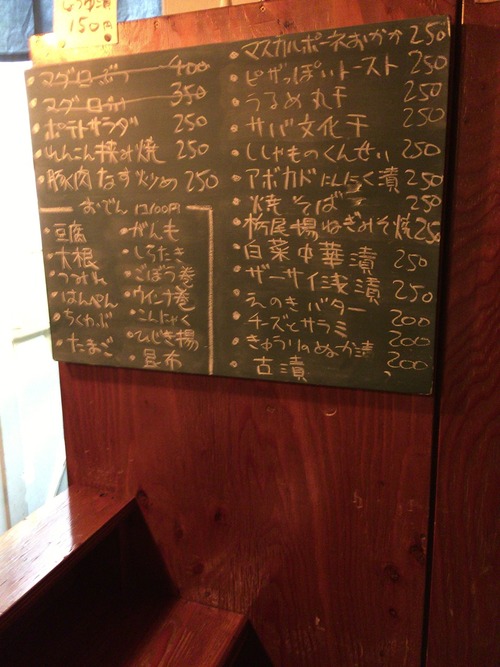 150円
マグロ 400
マグロ 350
ポテトサラダ 250
れんこん挟み焼 250
豚肉なす炒め 250
おでん 1コ100円
豆腐
大根
つみれ
はんぺん
ちくわぶ
たまご
がんも
しらたき
ごぼう巻
ウインナ巻
こんにゃく
ひじき揚
昆布
マスカルポーネおかか 250
ピザっぽいトースト 250
うるめ丸干 250
サバ文化干 250
ししゃものくんせい 250
アボカドにんにく漬 250
焼そば 250
栃尾揚ねぎみそ焼 250
白菜中華漬 250
ザーサイ浅漬 250
えのきバター
チーズとサラミ 200
きゅうりのぬか漬 200
古漬 200